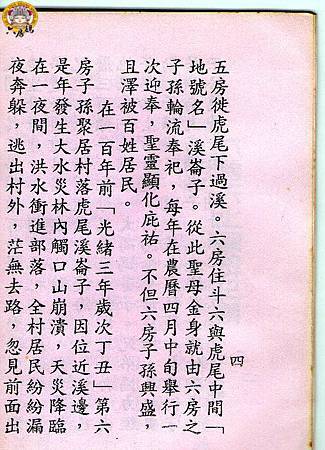 六房媽
四
五房徙虎尾下過溪。六房住斗六與虎尾中間「
地號名」溪崙子。從此聖母金身就由六房之
子孫輪流奉祀，每年在農曆四月中旬舉行一
次迎奉，聖靈顯化庇祐。不但六房子孫興盛，
且澤被百姓居民。
在一百年前「光緒三年歲次丁丑」第六
房子孫聚居村落虎尾溪崙子，因位近溪邊，
是年發生大水災林內觸口山崩潰，天災降臨
在一夜間，洪水衝進部落，全村居民紛紛漏
夜奔躲，逃出村外，茫無去路，忽見前面出